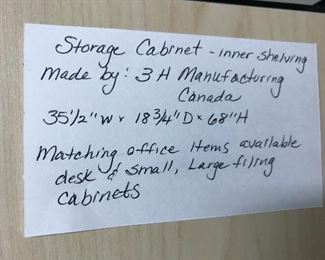 Storage Cabinet - inner shelving
Made by: 3 H Manufacturing
Canada
35½"W x 18¾"D x 68"H
Matching office items available
desk & small, Large filing
cabinets